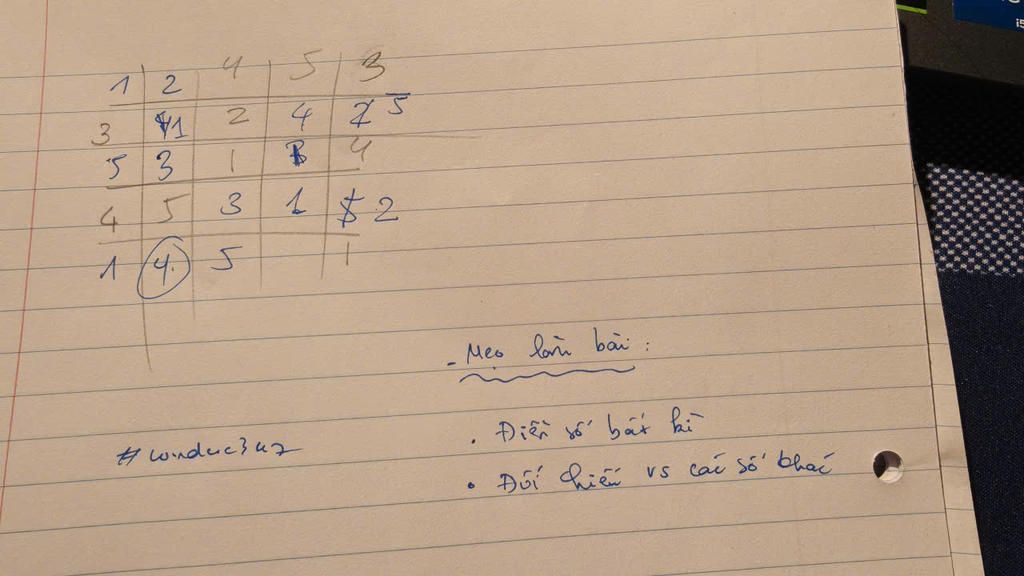 1 2 4 5 3
3 1 2 4 5
5 3 1 4
4 5 3 1 2
1 4. 5 1
- Mẹo làm bài :
. Điền số bất kì
• Đối chiếu vs các số khác
i5